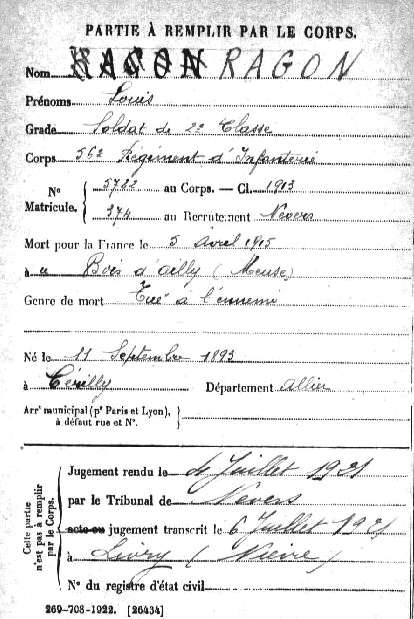 PARTIE À REMPLIR PAR LE CORPS.
Nom RAGON RAGON
Prénoms Louis
Grade Soldat de 2e Classe
Corps 56e Régiment d'Infanterie
No Matricule. 5722 au Corps. — Cl. 1913
374 au Recrutement Nevers
Mort pour la France le 5 Avril 1915
à u Bois d'ailly (Meuse)
Genre de mort Tué à l'ennemi
Né le 11 Septembre 1893
à Cérilly Département Allier
Arrt municipal (pr Paris et Lyon), à défaut rue et No.
Cette partie n'est pas à remplir par le Corps.
Jugement rendu le 4 Juillet 1921
par le Tribunal de Nevers
acte ou jugement transcrit le 6 Juillet 1921
à Livry (Nièvre)
No du registre d'état civil
269-708-1922. [26434]